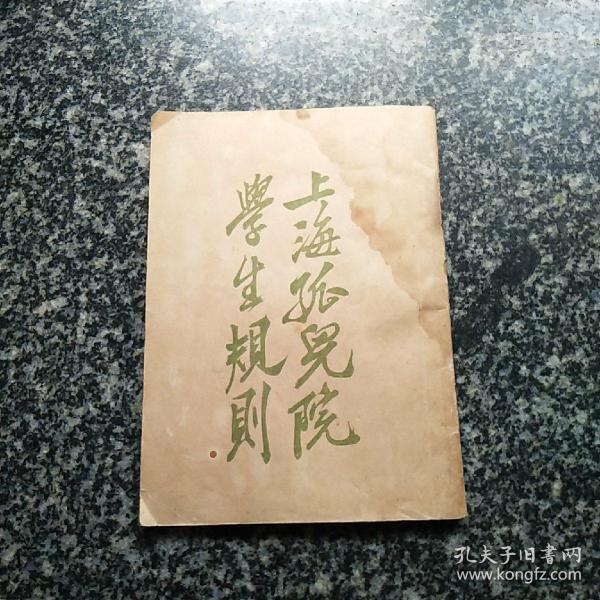 上海孤兒院
學生規則
孔夫子旧書网
www.kongfz.com